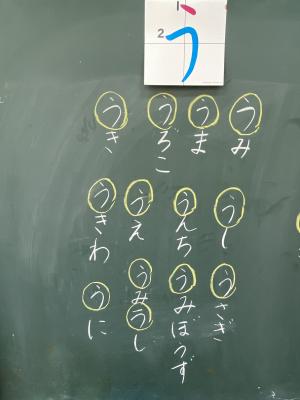 1
2
う
うみ
うま
うろこ
うき
うし
うんち
うえ
うきわ
うさぎ
うみぼうず
うみうし
うに